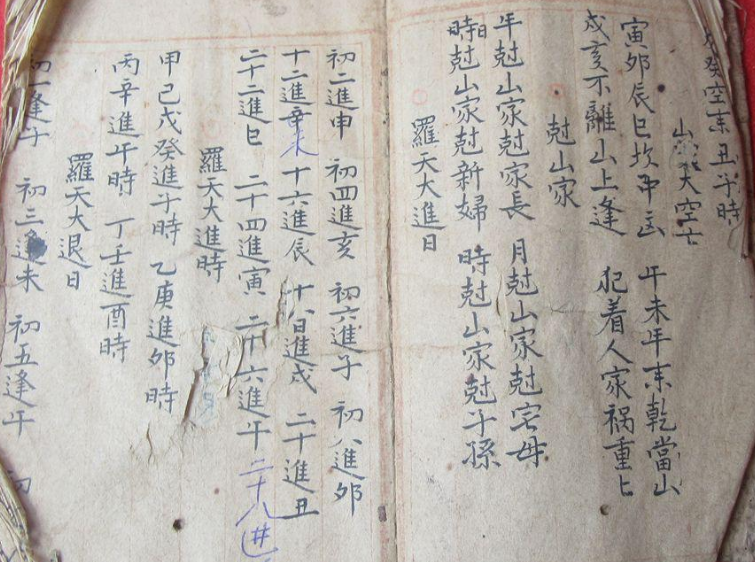 癸空亥丑子時
山家大空亡
寅卯辰巳坎中凶 午未年来乾當山
戌亥不離山上逢 犯着人家祸重匕
尅山家
年尅山家尅家長 月尅山家尅宅母
日時尅山家尅新婦 時尅山家尅子孫
羅天大進日
初二進申 初四進亥 初六進子 初八進卯
十二進未 十六進辰 十八日進戌 二十進丑
二十二進巳 二十四進寅 二十六進午 二十八進
羅天大進時
甲己戊癸進子時 乙庚進卯時
丙辛進午時 丁壬進酉時
羅天大退日
初一逢子 初三逢未 初五逢午 初